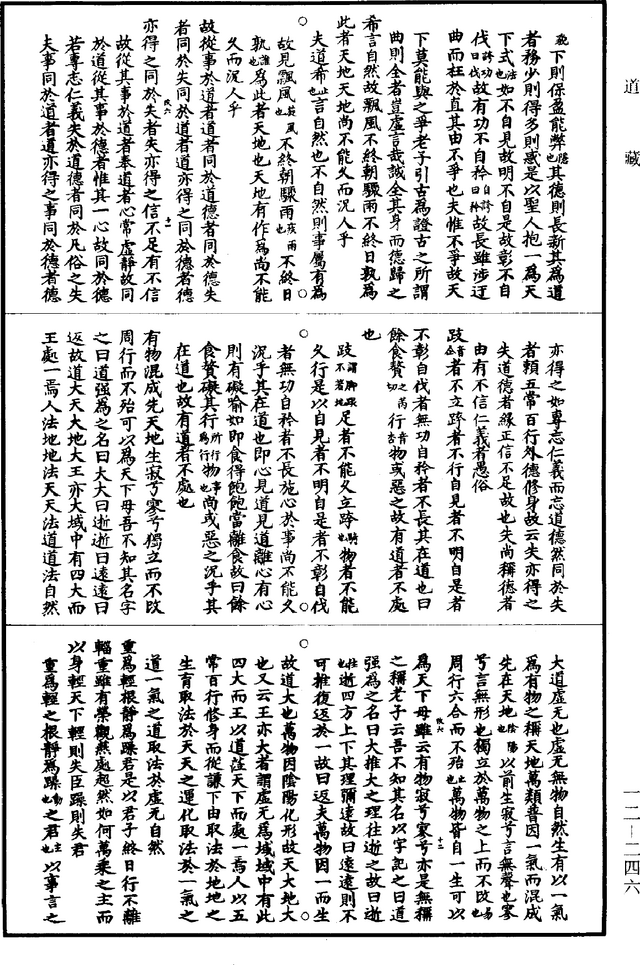 道藏
處下則保盈能弊也隱其德則長新其為道
者務少則得多則惑是以聖人抱一為天
下式法也如不自見故明不自是故彰不自
伐誇功曰伐故有功不自矜自誇曰矜故長雖涉迂
曲而枉於直其由不爭也夫惟不爭故天
下莫能與之爭老子引古為證古之所謂
曲則全者豈虛言哉誠全其身而德歸之
希言自然故飄風不終朝驟雨不終日孰為
此者天地天地尚不能久而況人乎
夫道希止也言自然也不自然則事屬有為
故見飄風疾風也不終朝驟雨疾雨也不終日
孰誰也為此者天地也天地有作為尚不能
久而況人乎
故從事於道者道者同於道德者同於德失
者同於失同於道者道亦得之同於德者德
亦得之同於失者失亦得之信不足有不信
故從其事於道者奉道者心常虛靜故同
於道從其事於德者惟其一心故同於德
若專志仁義失於道德者同於凡俗之失
夫事同於道者道亦得之事同於德者德
亦得之如專志仁義而忘道德然同於失
者賴五常百行外德修身故云失亦得之
失道德者緣正信不足故也失尚稱德者
由有不信仁義者愚俗
跂者不立跨者不行自見者不明自是者
不彰自伐者無功自矜者不長其在道也曰
餘食贅行物或惡之故有道者不處
也
跂謂腳跟不著地足者不能久立跨物者不能
久行是以自見者不明自是者不彰自伐
者無功自矜者不長施心於事尚不能久
況乎其在道也即心見道見道離心有心
則有礙喻如即食得飽飽當離食故曰餘
食贅礙其行所行為行物事也尚或惡之況乎其
在道也故有道者不處也
有物混成先天地生寂兮寥兮獨立而不改
周行而不殆可以為天下母吾不知其名字
之曰道強為之名曰大大曰逝逝曰遠遠曰
返故道大天大地大王亦大域中有四大而
王處一焉人法地地法天天法道道法自然
大道虛无也虛无無物自然生有以一氣
為有物之稱天地萬類普因一氣而混成
先在天地陰陽也以前生寂兮言無聲也寥
兮言無形也獨立於萬物之上而不改易也
周行六合而不殆止也萬物皆自一生可以
為天下母雖云有物寂兮寥兮亦是無稱
之稱老子云吾不知其名以字記之曰道
強為之名曰大推大之理往逝之故曰逝
往也逝四方上下其理彌遠故曰遠遠則不
可推復返於一故曰返夫萬物因一而生
故道大也萬物因陰陽化形故天大地大
也又云王亦大者謂虛无為域域中有此
四大而王以道莅天下而處一焉人以五
常百行修身而從謙下由取法於地地之
生育取法於天天之運化取法於一氣之
道一氣之道取法於虛无自然
重為輕根靜為躁君是以君子終日行不離
輜重雖有榮觀燕處超然如何萬乘之主而
以身輕天下輕則失臣躁則失君
重為輕之根靜為躁動也之君主也以事言之
一二—二四六